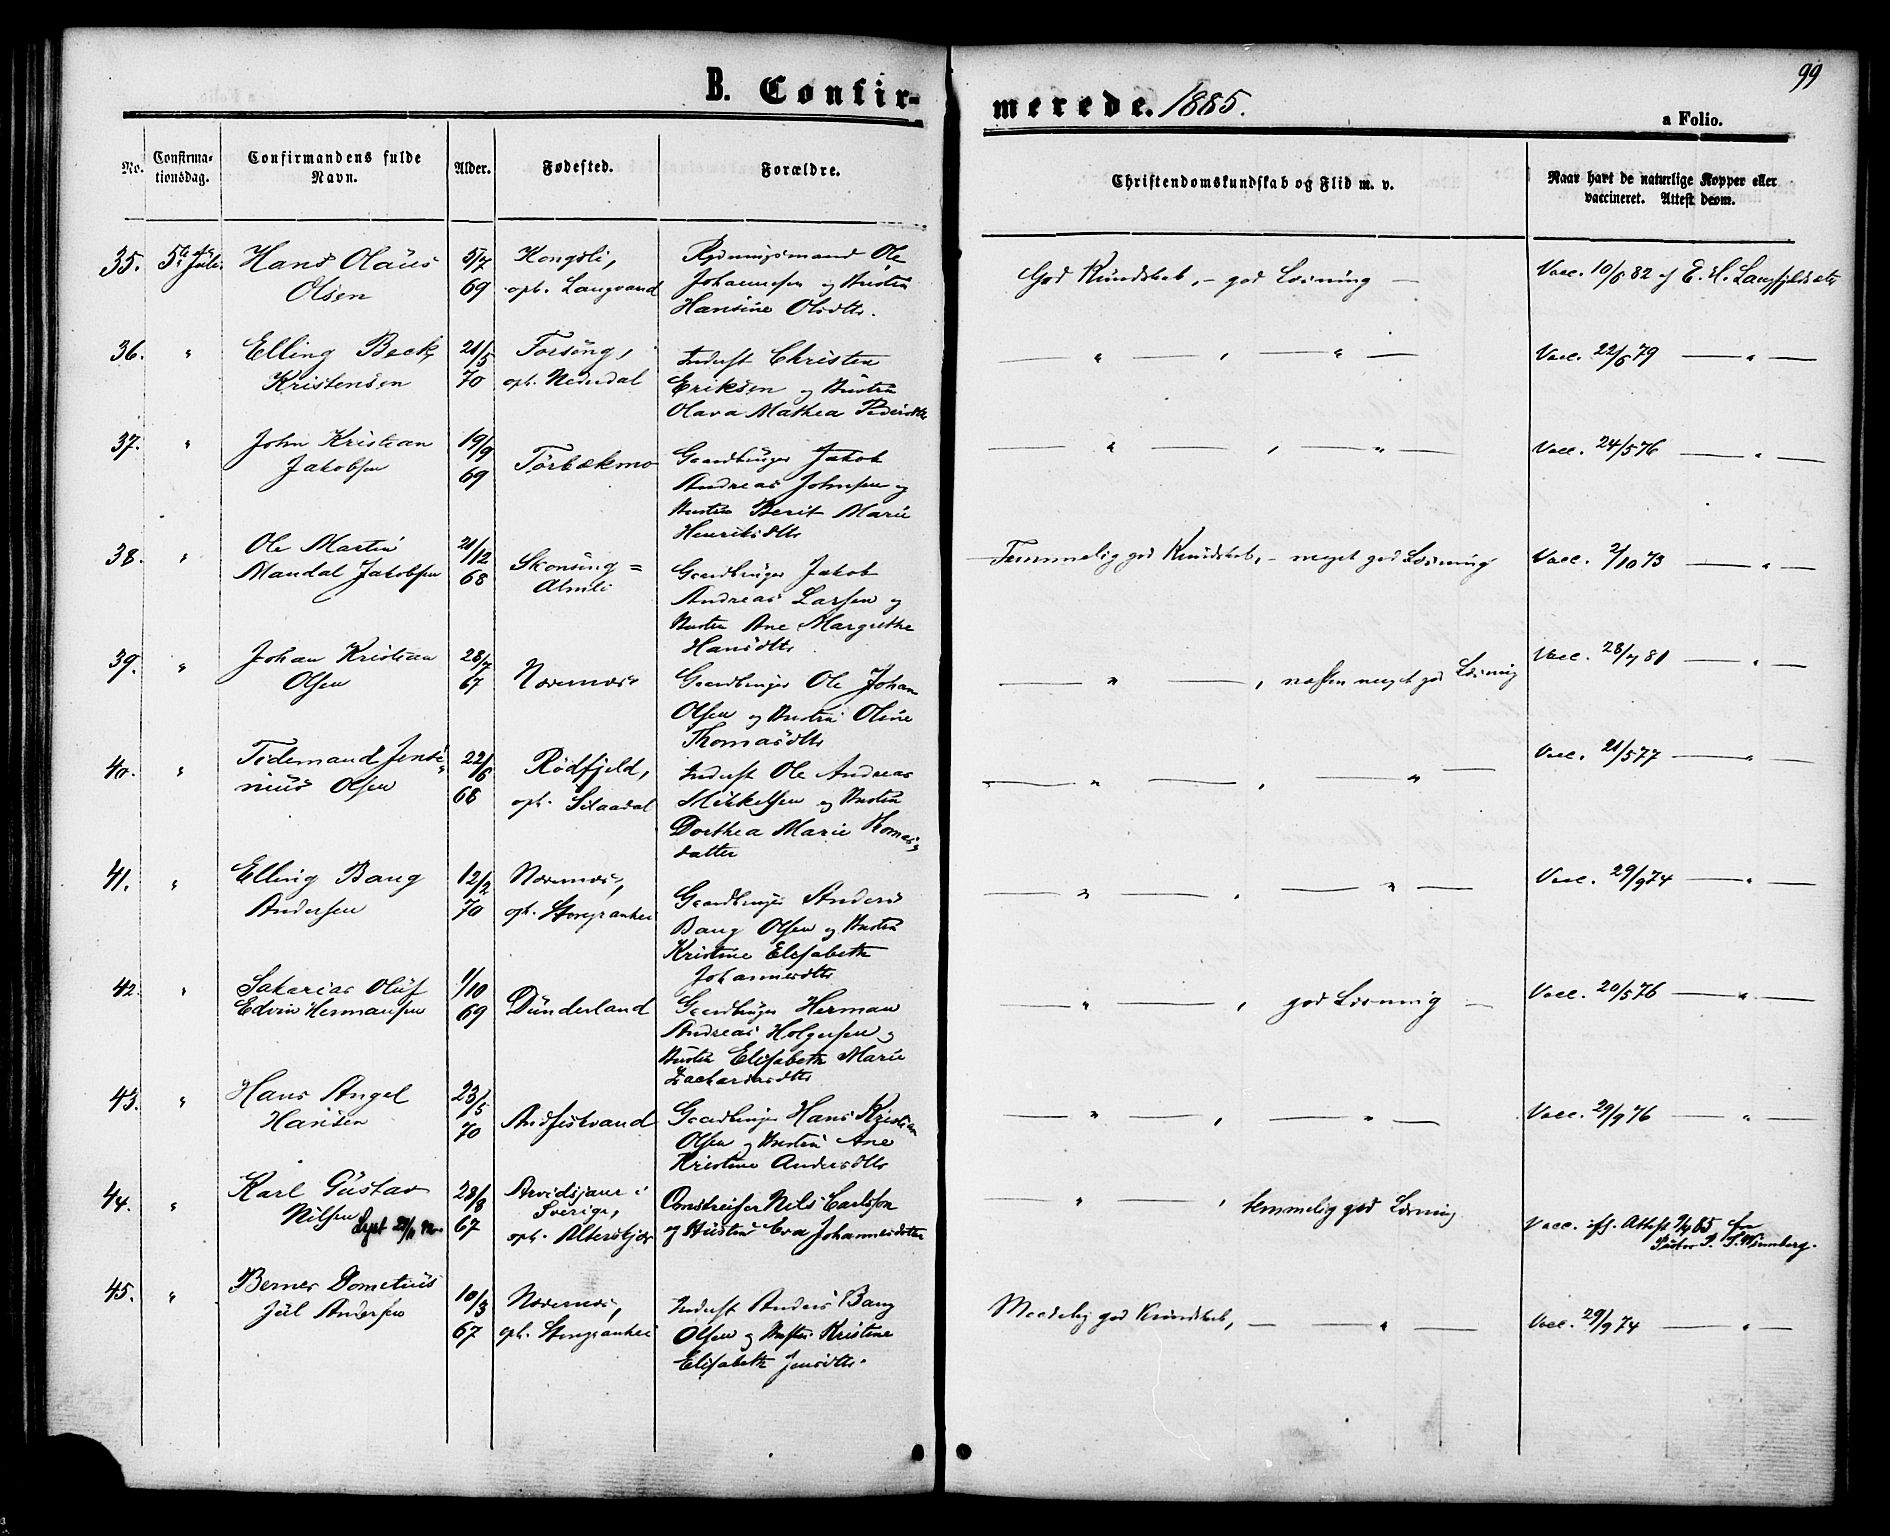 99
B. Confirmerede. 1885.
a Folio.
No. Confirmationsdag. Confirmandens fulde Navn. Alder. Fødested. Forældre. Christendomskundskab og Flid m. v. Naar havt de naturlige Kopper eller vaccineret. Attest derom.
35. 5te Juli. Hans Olaus 5/7 Kongsli, Rydningsmand Ole God Kundskab, – god Læsning — Vacc. 10/6 82 af E. H. Langfjeldsæter
Olsen 69 opt. Langvand Johannesen og Hustru
Hansine Olsdtr.
36. " Elling Beck 21/5 Forsöng, Inderst Christen — " — , — " — Vacc. 22/6 79 — " —
Kristensen 70 opt. Nederdal Eriksen og Hustru
Olava Mathea Pedersdtr
37. " John Kristian 19/9 Tørbækmo Gaardbruger Jakob — " — , — " — Vacc. 24/5 76 — " —
Jakobsen 69 Andreas Johnsen og
Hustru Berit Marie
Henriksdtr
38. " Ole Martin 21/12 Skonseng = Gaardbruger Jakob Temmelig god Kundskab, – meget god Læsning Vacc. 2/10 73 — " —
Mandal Jakobsen 68 Almli Andreas Larsen og
Hustru Ane Margrethe
Hansdtr
39. " Johan Kristian 28/7 Nævernæs Gaardbruger Ole Johan — " — , næsten meget god Læsning Vacc. 28/7 81 — " —
Olsen 67 Olsen og Hustru Oline
Thomasdtr
40. " Tidemand Jensenius 22/6 Rödfjeld, Inderst Ole Andreas — " — , — " — Vacc. 21/5 77 — " —
Olsen 68 opt. Mikkelsen og Hustru
Dorthea Marie Thomasdatter
41. " Elling Bang 12/2 Nævernæs, Gaardbruger Anders — " — , — " — Vacc. 29/9 74 — " —
Andersen 70 opt. Storgranhei Bang Olsen og Hustru
Kristine Elisabeth
Johannesdtr
42. " Sakarias Oluf 1/10 Dunderland Gaardbruger Herman — " — , god Læsning — Vacc. 20/5 76 — " —
Edvin Hermansen 69 Andreas Holgersen og
Hustru Elisabeth Marie
Zachariasdtr
43. " Hans Angel 23/5 Andfiskvand Gaardbruger Hans Kristian — " — , — " — Vacc. 29/9 76 — " —
Hansen 70 Olsen og Hustru Ane
Kristine Andersdtr
44. " Karl Gustav 28/8 Arvidsjaur i Omstreifer Nils Carlsson " , temmelig god Læsning Vacc. ifl. Attest 9/4 85 fra
Nilsen 67 Sverige, og Hustru Eva Johannesdatter Pastor
opt.
45. " Berner Dometius 10/3 Nævernæs, Inderst Anders Bang Maadelig god Kundskab, — " — Vacc. 29/9 74 — " —
Jul Andersen 67 opt. Storgranhei Olsen og Hustru Kristine
Elisabeth Jensdtr.